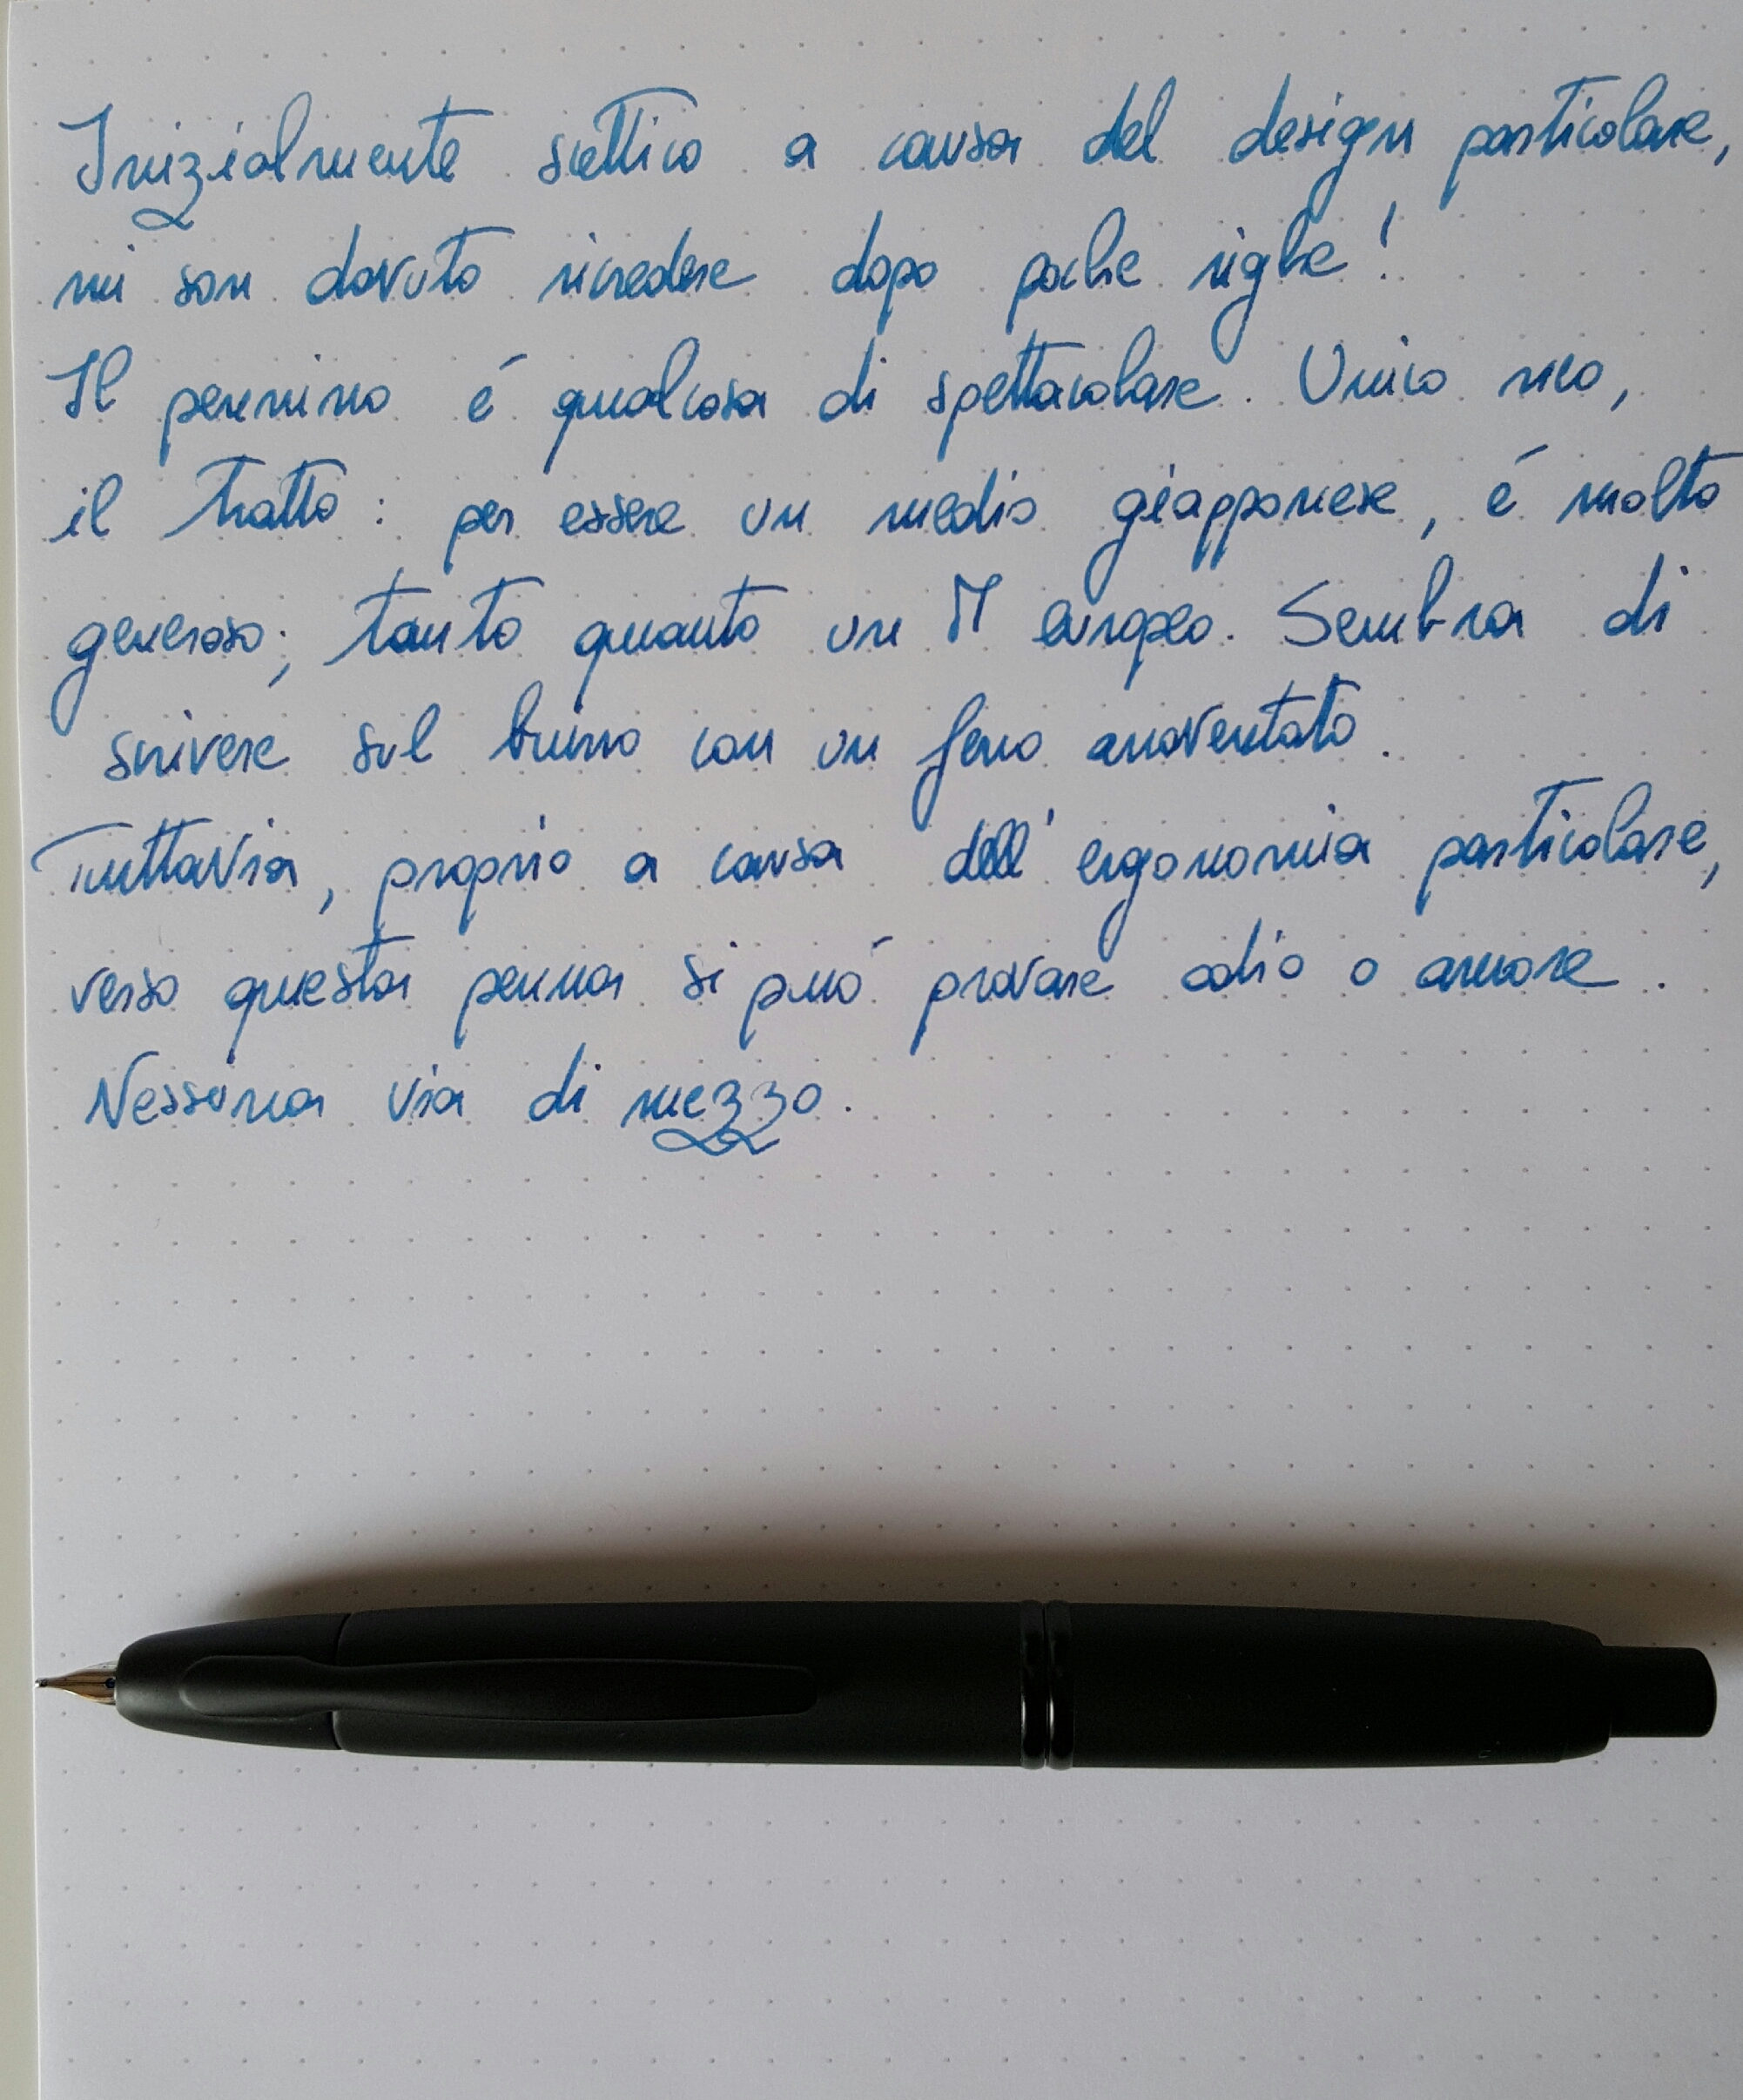 Inizialmente scettico a causa del design particolare,
mi son dovuto ricredere dopo poche righe!
Il pennino é qualcosa di spettacolare. Unico neo,
il tratto: per essere un medio giapponese, é molto
generoso; tanto quanto un M europeo. Sembra di
scrivere sul burro con un ferro arroventato.
Tuttavia, proprio a causa dell'ergonomia particolare,
verso questa penna si puó provare odio o amore.
Nessuna via di mezzo.